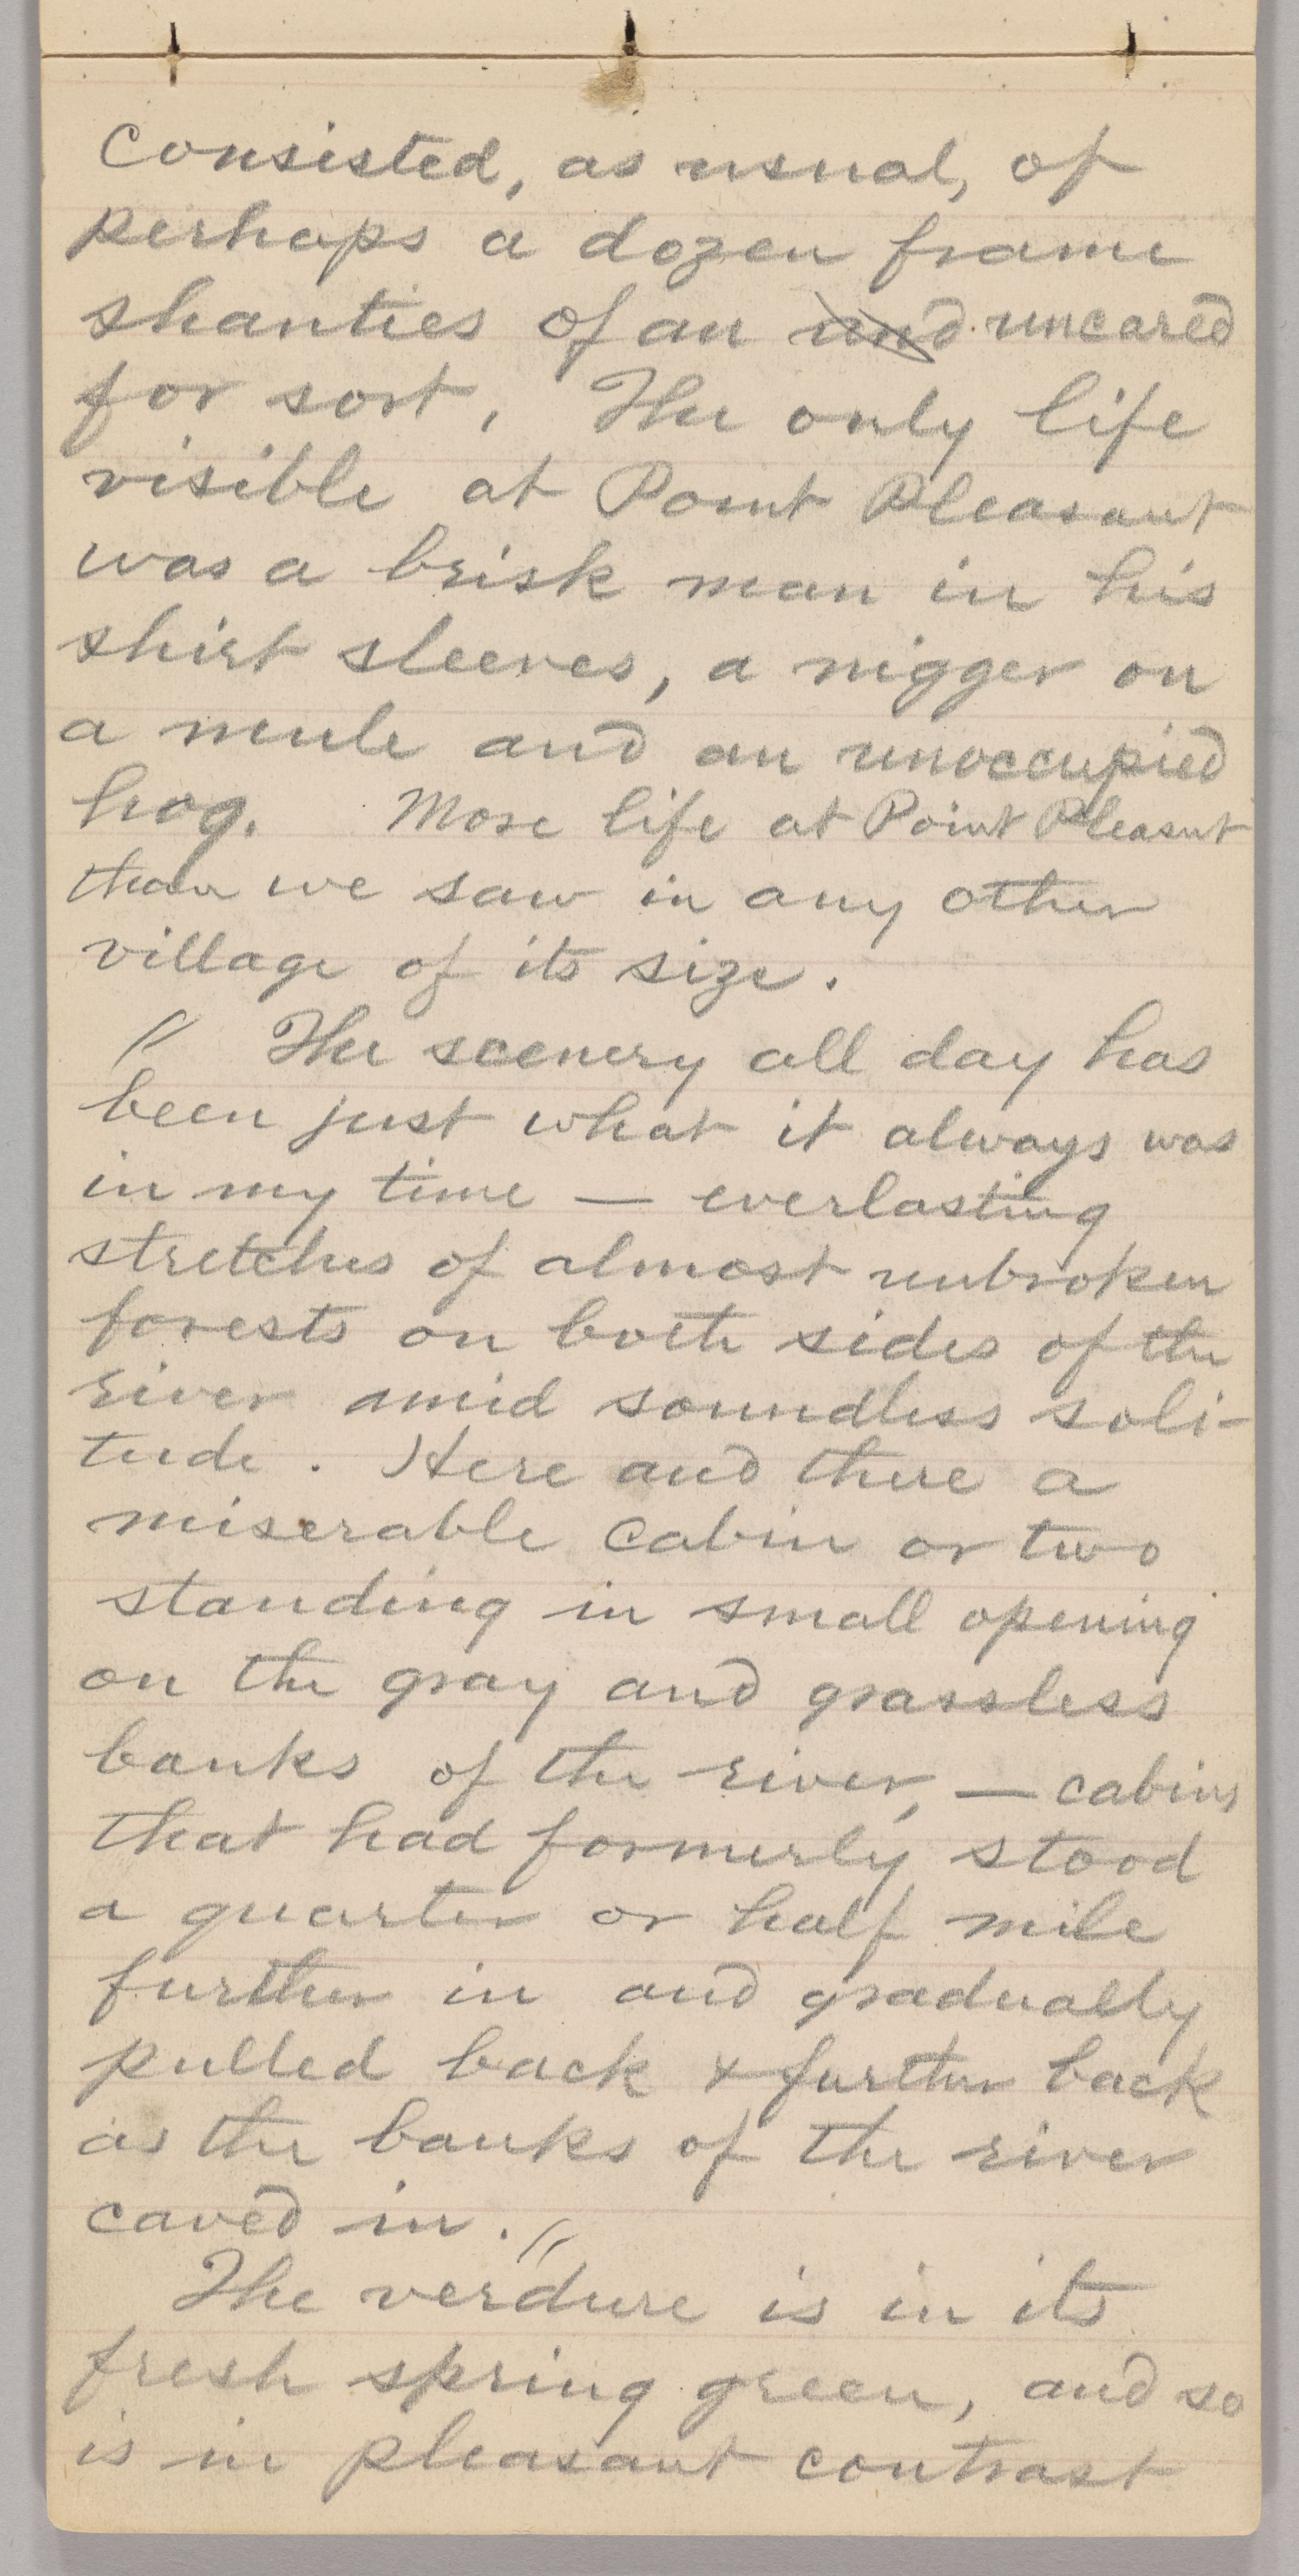 Consisted, as usual, of
perhaps a dozen frame
shanties of an und uncared
for sort. The only life
visible at Point Pleasant
was a brisk man in his
shirt sleeves, a nigger on
a mule and an unoccupied
hog. More life at Point Pleasnt
than we saw in any other
village of its size.
" The scenery all day has
been just what it always was
in my time — everlasting
stretches of almost unbroken
forests on both sides of the
river amid soundless soli-
tude. Here and there a
miserable cabin or two
standing in small opening
on the gray and grassless
banks of the river, — cabins
that had formerly stood
a quarter or half mile
further in and gradually
pulled back & further back
as the banks of the river
caved in. "
The verdure is in its
fresh spring green, and so
is in pleasant contrast